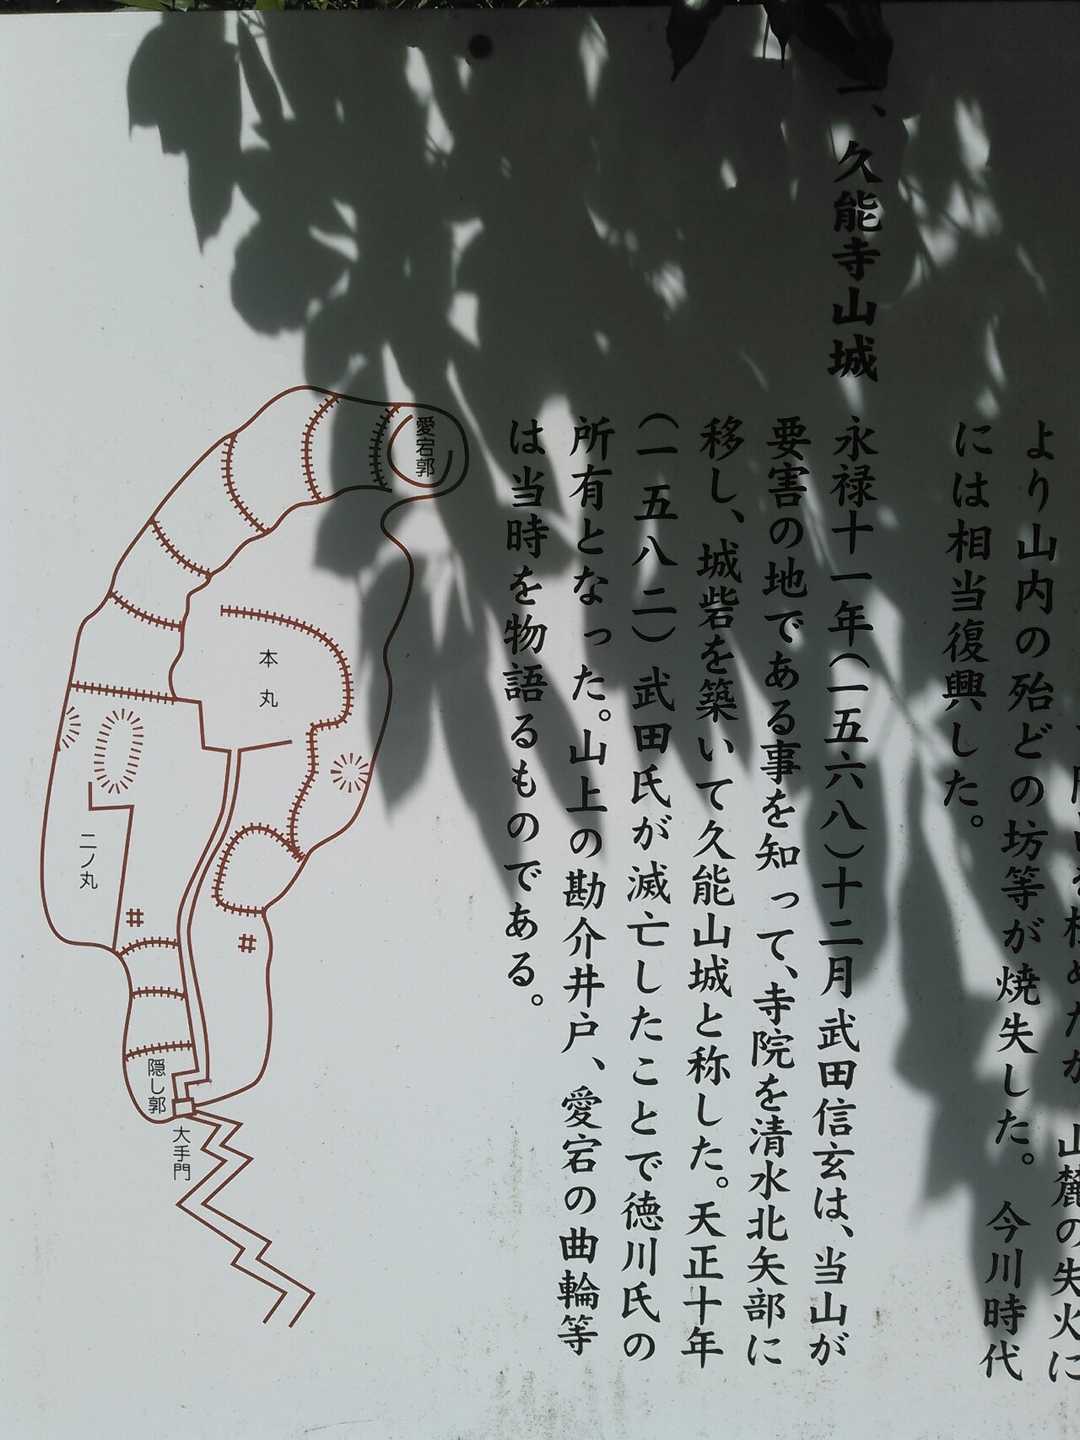 山麓の失火に
より山内の殆どの坊等が焼失した。今川時代
には相当復興した。
一、久能寺山城
永禄十一年（一五六八）十二月武田信玄は、当山が
要害の地である事を知って、寺院を清水北矢部に
移し、城砦を築いて久能山城と称した。天正十年
（一五八二）武田氏が滅亡したことで徳川氏の
所有となった。山上の勘介井戸、愛宕の曲輪等
は当時を物語るものである。
愛宕郭
本丸
二ノ丸
隠し郭
大手門